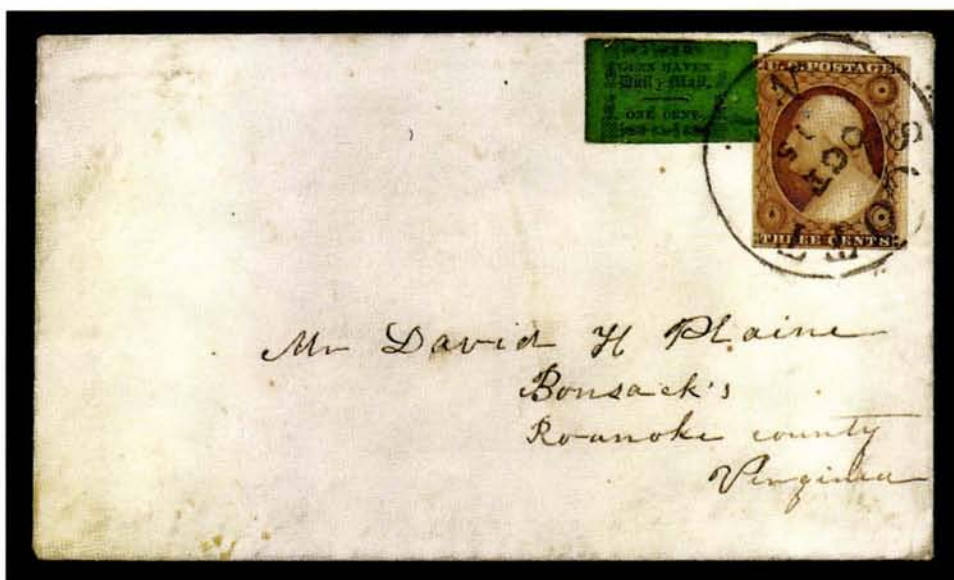 GLEN HAVEN
Daily Mail.
ONE CENT.
U.S. POSTAGE
THREE CENTS
SCOTT
N
15
OCT
Mr David H Plaine
Bonsack's
Roanoke county
Virginia